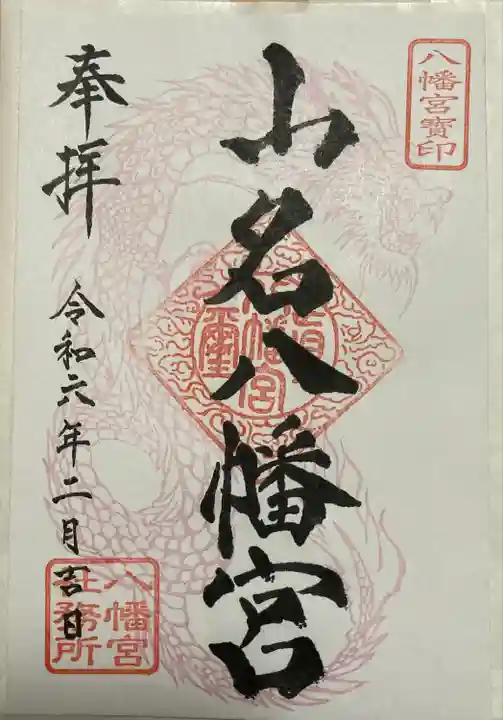 八幡宮寶印
山名八幡宮
奉拝
令和六年二月吉日
八幡宮
社務所